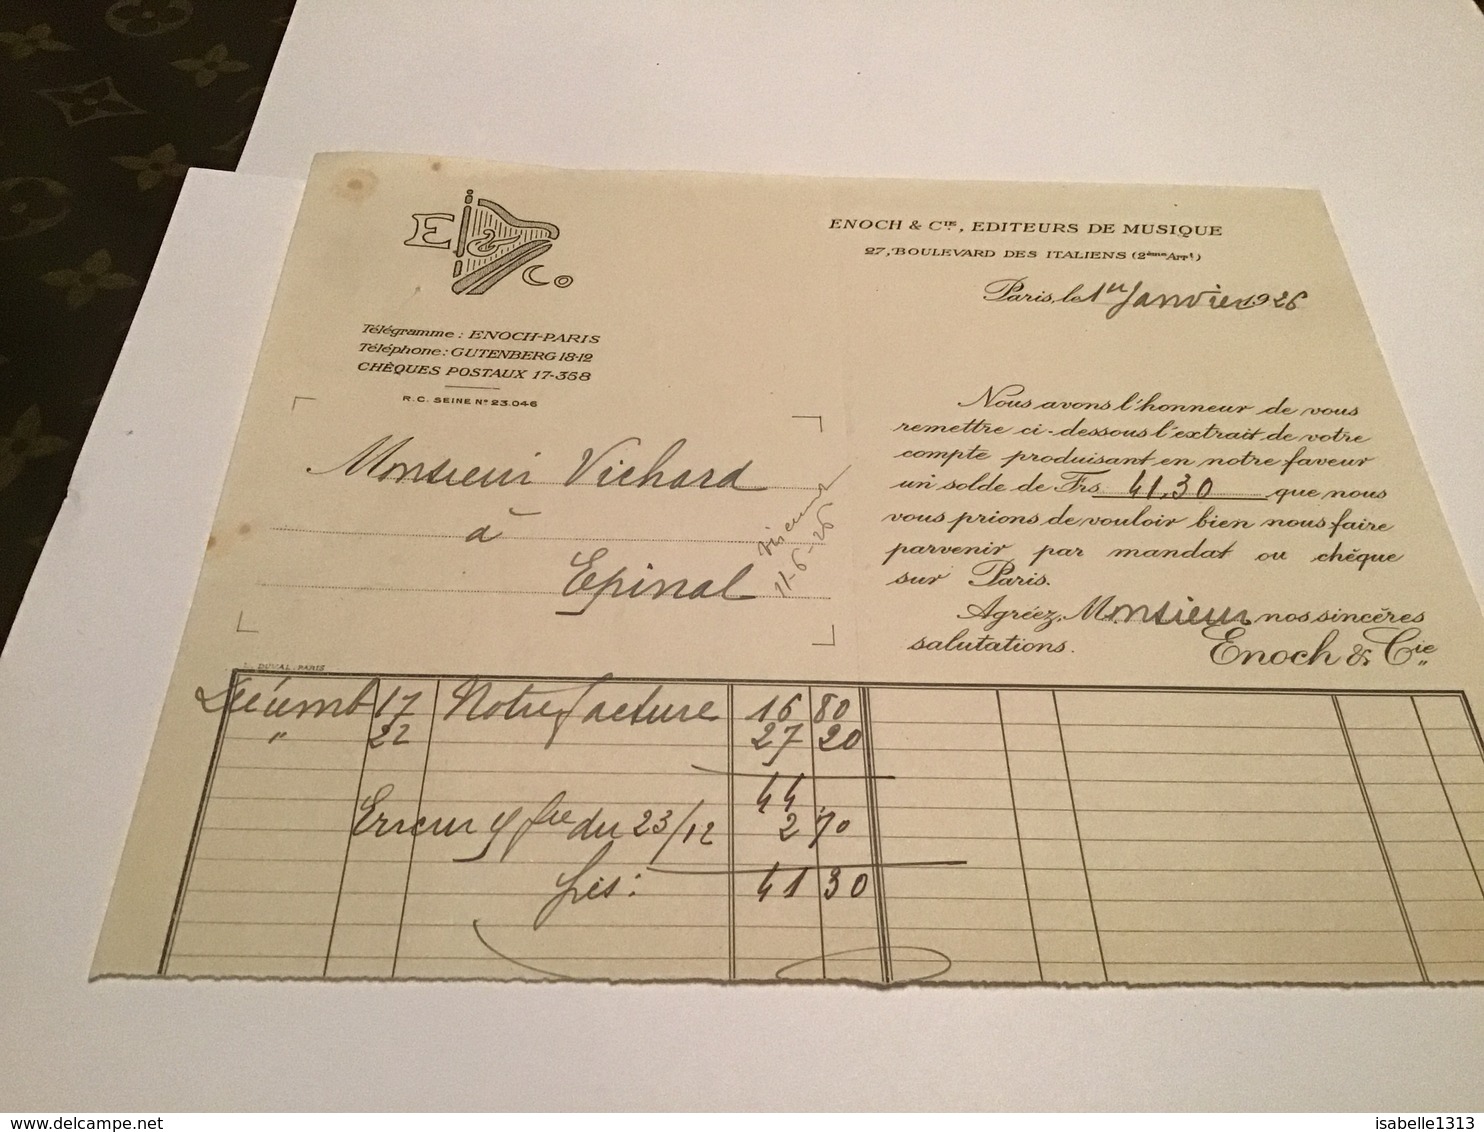 E & Co
ENOCH & Cie, EDITEURS DE MUSIQUE
27, BOULEVARD DES ITALIENS (2ème Arrt)
Paris, le 1er Janvier 1926
Télégramme : ENOCH-PARIS
Téléphone : GUTENBERG 18-12
CHÈQUES POSTAUX 17-358
R.C. SEINE N° 23.046
Monsieur Vichard
à
Epinal
11-6-26
Nous avons l'honneur de vous
remettre ci-dessous l'extrait de votre
compte produisant en notre faveur
un solde de Frs 41,30 que nous
vous prions de vouloir bien nous faire
parvenir par mandat ou chèque
sur Paris.
Agréez, Monsieur nos sincères
salutations.
Enoch & Cie
DUVAL, PARIS
Décemb 17 Notre facture 16 80
" 22 27 20
44
Erreur s/ fre du 23/12 2 70
frs : 41 30
www.delcampe.net
isabelle1313